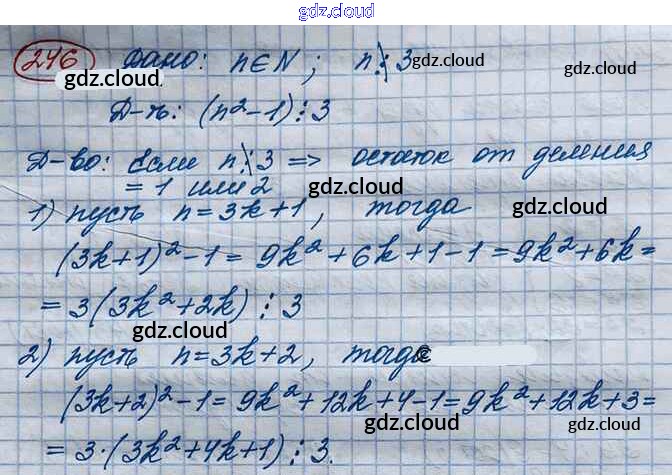 gdz.cloud
246 Дано: n∈N; n⋮̸3 gdz.cloud
gdz.cloud
Д-ть: (n²-1)⋮3
Д-во: Если n⋮̸3 => остаток от деления
= 1 или 2 gdz.cloud
1) пусть n=3k+1, тогда gdz.cloud
(3k+1)²-1= 9k²+6k+1-1=9k²+6k=
gdz.cloud
= 3(3k²+2k)⋮3
gdz.cloud gdz.cloud
2) пусть n=3k+2, тогда
(3k+2)²-1=9k²+12k+4-1=9k²+12k+3=
gdz.cloud gdz.cloud
= 3·(3k²+4k+1)⋮3.
gdz.cloud